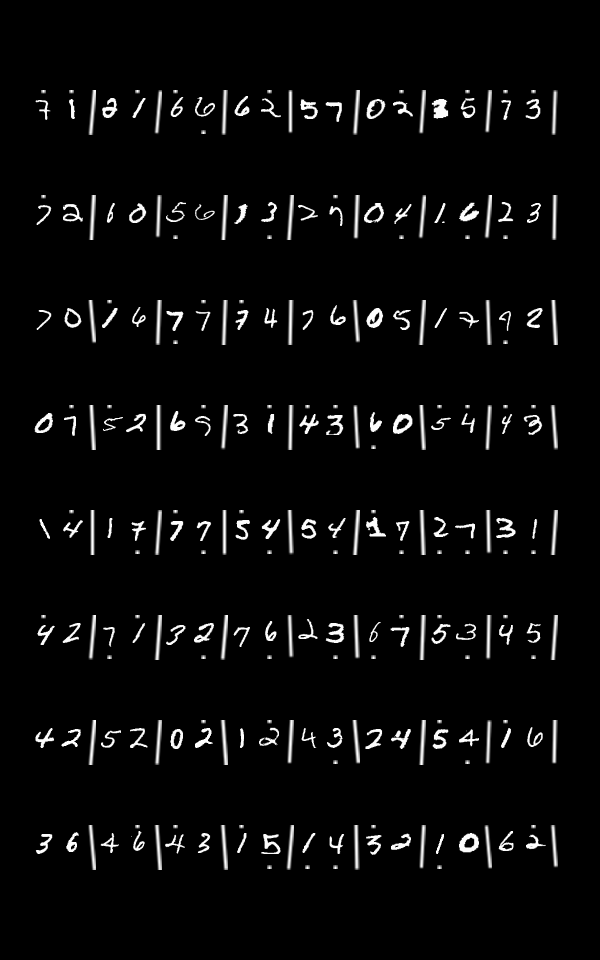 7̇ 1̇ | 2̇ 1̇ | 6̇ 6̣ | 6 2̇ | 5 7 | 0 2̇ | 3 5̇ | 7̇ 3̇ |
7̇ 2 | 6 0 | 5̣ 6 | 1 3̣ | 2 7̇ | 0 4̣ | 1 6̣ | 2̣ 3 |
7 0 | 1̇ 6 | 7̣ 7̇ | 7̇ 4 | 7 6 | 0 5 | 1 7 | 4̣ 2 |
0 7̇ | 5̇ 2 | 6 5̇ | 3 1̇ | 4̇ 3̇ | 6̣ 0 | 5̇ 4̇ | 4̇ 3̇ |
1 4̇ | 1 7̣ | 7̇ 7̣ | 5̇ 4̇ | 5 4̣ | 1̇ 7̣ | 2̣ 7̣ | 3̣ 1̣ |
4̇ 2 | 7̣ 1̇ | 3 2̣ | 7 6̣ | 2 3̣ | 6̣ 7̇ | 5̇ 3̣ | 4̇ 5̣ |
4 2 | 5 2 | 0 2̇ | 1 2̇ | 4 3̣ | 2 4 | 5̇ 4̣ | 1̇ 6 |
3 6 | 4 6̇ | 4̇ 3 | 1̇ 5̣ | 1̣ 4̣ | 3̇ 2 | 1̣ 0 | 6 2̇ |